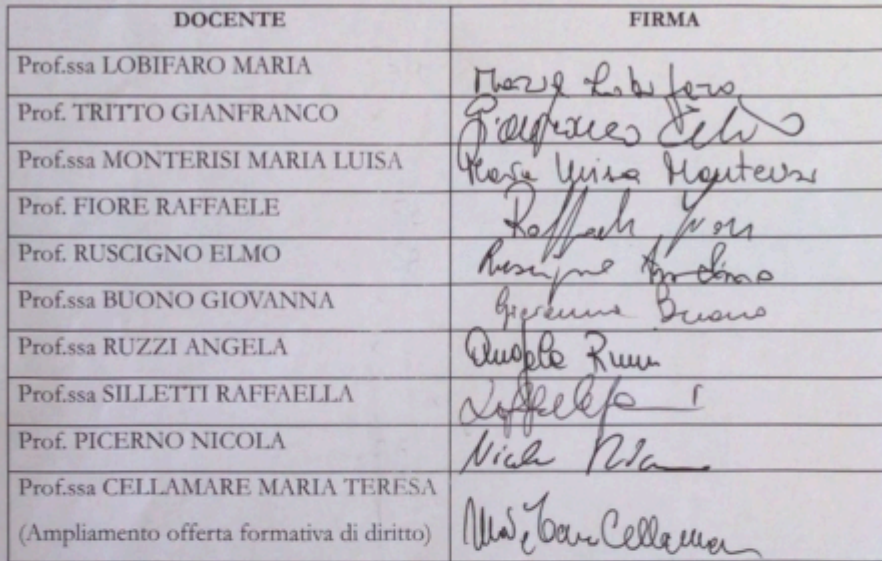 DOCENTE FIRMA
Prof.ssa LOBIFARO MARIA Maria Lobifaro
Prof. TRITTO GIANFRANCO Gianfranco
Prof.ssa MONTERISI MARIA LUISA Maria Luisa Monterisi
Prof. FIORE RAFFAELE Raffaele Fiore
Prof. RUSCIGNO ELMO Ruscigno
Prof.ssa BUONO GIOVANNA Giovanna Buono
Prof.ssa RUZZI ANGELA Angela Ruzzi
Prof.ssa SILLETTI RAFFAELLA
Prof. PICERNO NICOLA Nicola
Prof.ssa CELLAMARE MARIA TERESA
(Ampliamento offerta formativa di diritto) Cellamare